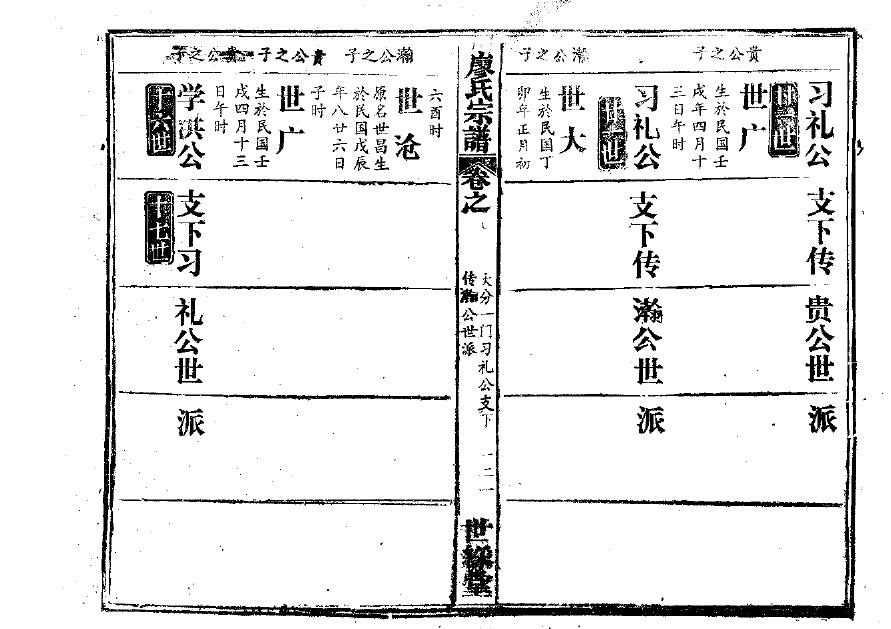 习礼公支下传贵公世派
贵公之子
世广
生於民国壬
戌年四月十
三日午时
习礼公支下传瀚公世派
瀚公之子
世大
生於民国丁
卯年正月初
廖氏宗譜
卷之
大分一门习礼公支下
传瀚公世派
一二一
世綵堂
六酉时
瀚公之子
世沧
原名世昌生
於民国戊辰
年八廿六日
子时
贵公之子
世广
生於民国壬
戌四月十三
日午时
贵公之子
学淇公支下习礼公世派
十六世
十七世